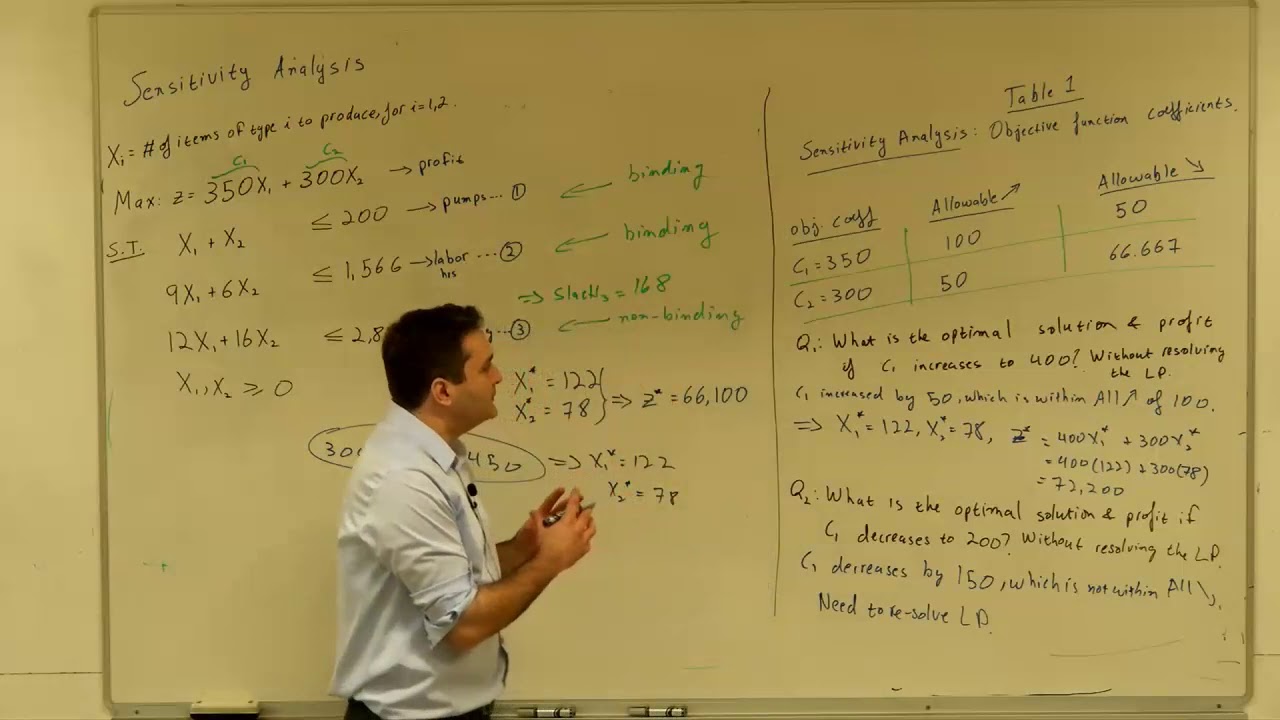 Sensitivity Analysis
Xi = # of items of type i to produce, for i=1,2.
C1 C2
Max: z = 350X1 + 300X2 → profit
S.T. X1 + X2 ≤ 200 → pumps... ① ← binding
9X1 + 6X2 ≤ 1,566 → labor hrs ... ② ← binding
⇒ Slack3 = 168
12X1 + 16X2 ≤ 2,8 ③ ← non-binding
X1, X2 ≥ 0
X1* = 122
X2* = 78 } ⇒ Z* = 66,100
300 450 ⇒ X1* = 122
X2* = 78
Table 1
Sensitivity Analysis: Objective function coefficients.
obj. coeff Allowable ↗ Allowable ↘
C1 = 350 100 50
C2 = 300 50 66.667
Q1: What is the optimal solution & profit
if C1 increases to 400? Without resolving
the LP.
C1 increased by 50, which is within All ↗ of 100.
⇒ X1* = 122, X2* = 78, Z* = 400X1* + 300X2*
= 400(122) + 300(78)
= 72,200
Q2: What is the optimal solution & profit if
C1 decreases to 200? Without resolving the LP.
C1 decreases by 150, which is not within All ↘.
Need to re-solve LP.